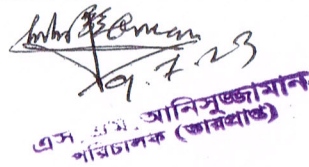 ৯.7.২৩
এস. এম. আনিসুজ্জামান
পরিচালক (ভারপ্রাপ্ত)